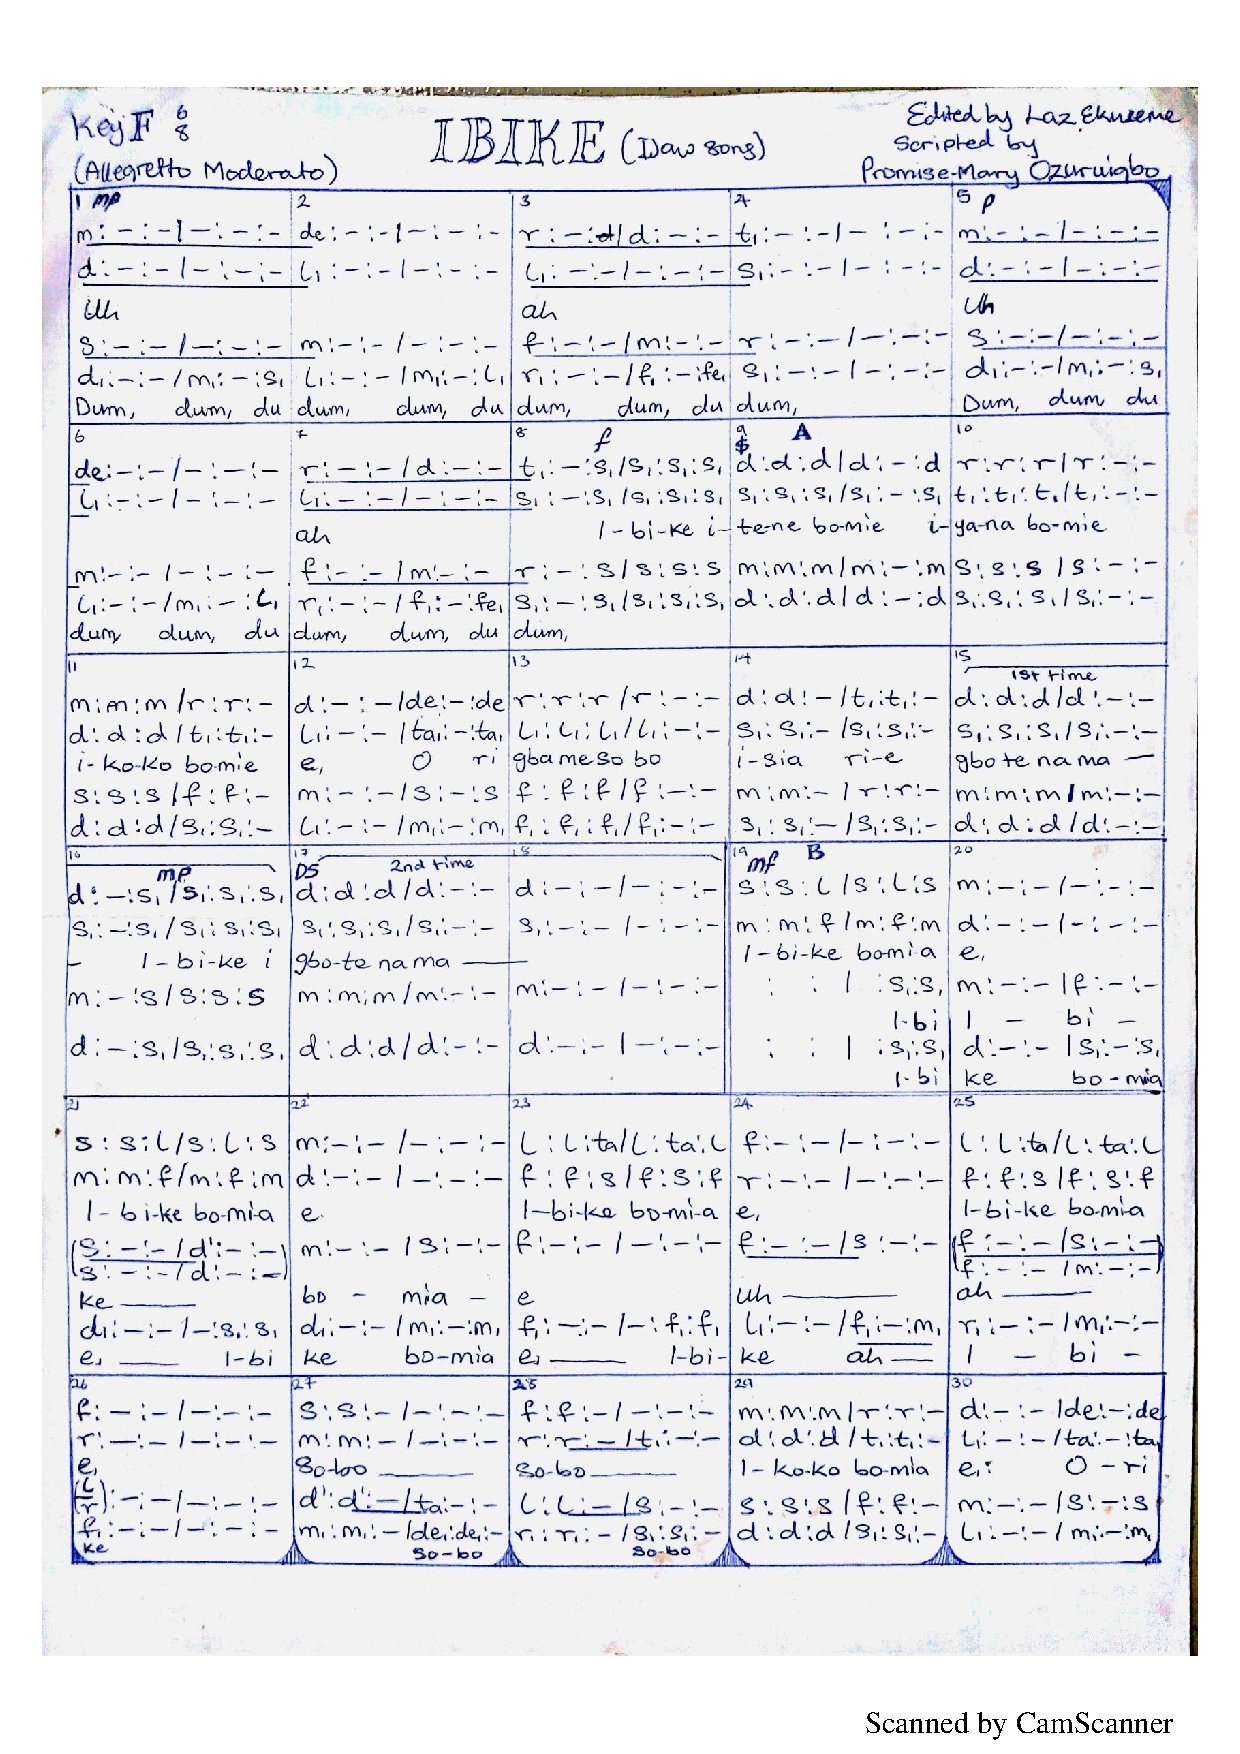 Key F 6/8
IBIKE (Ijaw song)
Edited by Laz. Ekwueme
Scripted by
(Allegretto Moderato)
Promise-Mary Ozuruigbo
1 mp 2 3 4 5 p
m:-:-|-:-:- de:-:-|-:-:- r:-:-/d:-:- t₁:-:-|-:-:- m:-:-|-:-:-
d:-:-/-:-:- l₁:-:-|-:-:- l₁:-:-/-:-:- s₁:-:-|-:-:- d:-:-|-:-:-
Uh ah Uh
s:-:-/-:-:- m:-:-/-:-:- f:-:-/m:-:- r:-:-/-:-:- s:-:-/-:-:-
d₁:-:-/m₁:-:s₁ l₁:-:-/m₁:-:l₁ r₁:-:-/f₁:-:fe₁ s₁:-:-|-:-:- d₁:-:-/m₁:-:s₁
Dum, dum, du dum, dum, du dum, dum, du dum, Dum, dum du
6 7 8 f 9 $ A 10
de:-:-/-:-:- r:-:-/d:-:- t₁:-:s₁/s₁:s₁:s₁ d:d:d/d:-:d r:r:r/r:-:-
l₁:-:-/-:-:- l₁:-:-/-:-:- s₁:-:s₁/s₁:s₁:s₁ s₁:s₁:s₁/s₁:-:s₁ t₁:t₁:t₁/t₁:-:-
ah I-bi-ke i-te-ne bomie i-ya-na bo-mie
m:-:-/-:-:- f:-:-/m:-:- r:-:s/s:s:s m:m:m/m:-:m s:s:s/s:-:-
l₁:-:-/m₁:-:l₁ r₁:-:-/f₁:-:fe₁ s₁:-:s₁/s₁:s₁:s₁ d:d:d/d:-:d s₁:s₁:s₁/s₁:-:-
dum, dum, du dum, dum, du dum,
11 12 13 14 15 1st time
m:m:m/r:r:- d:-:-/de:-:de r:r:r/r:-:- d:d:-/t₁:t₁:- d:d:d/d:-:-
d:d:d/t₁:t₁:- l₁:-:-/ta₁:-:ta₁ l₁:l₁:l₁/l₁:-:- s₁:s₁:-/s₁:s₁:- s₁:s₁:s₁/s₁:-:-
i-ko-ko bo-mie e, O ri gba me so bo i-sia ri-e gbo te na ma —
s:s:s/f:f:- m:-:-/s:-:s f:f:f/f:-:- m:m:-/r:r:- m:m:m/m:-:-
d:d:d/s₁:s₁:- l₁:-:-/m₁:-:m₁ f₁:f₁:f₁/f₁:-:- s₁:s₁:-/s₁:s₁:- d:d:d/d:-:-
16 mp 17 DS 2nd time 18 19 mf B 20
d:-:s₁/s₁:s₁:s₁ d:d:d/d:-:- d:-:-/-:-:- s:s:l/s:l:s m:-:-/-:-:-
s₁:-:s₁/s₁:s₁:s₁ s₁:s₁:s₁/s₁:-:- s₁:-:-/-:-:- m:m:f/m:f:m d:-:-/-:-:-
- I-bi-ke i gbo-te na ma — I-bi-ke bo-mi-a e,
m:-:s/s:s:s m:m:m/m:-:- m:-:-/-:-:- : : | :s₁:s₁ m:-:-|f:-:-
I-bi I - bi -
d:-:s₁/s₁:s₁:s₁ d:d:d/d:-:- d:-:-|-:-:- : : | :s₁:s₁ d:-:-|s₁:-:s₁
I-bi ke bo-mia
21 22 23 24 25
s:s:l/s:l:s m:-:-/-:-:- l:l:ta/l:ta:l f:-:-/-:-:- l:l:ta/l:ta:l
m:m:f/m:f:m d:-:-/-:-:- f:f:s/f:s:f r:-:-/-:-:- f:f:s/f:s:f
I-bi-ke bo-mia e. I-bi-ke bo-mi-a e, I-bi-ke bo-mia
(s:-:-/d':-:-) m:-:-/s:-:- f:-:-/-:-:- f:-:-/s:-:- (f:-:-/s:-:-)
(s:-:-/d:-:-) (f:-:-/m:-:-)
ke — bo - mia - e Uh — ah —
d₁:-:-/-:s₁:s₁ d₁:-:-/m₁:-:m₁ f₁:-:-/-:f₁:f₁ l₁:-:-/f₁:-:m₁ r₁:-:-/m₁:-:-
e, — I-bi ke bo-mia e, — I-bi- ke ah — I - bi -
26 27 28 29 30
f:-:-/-:-:- s:s:-/-:-:- f:f:-/-:-:- m:m:m/r:r:- d:-:-/de:-:de
r:-:-/-:-:- m:m:-/-:-:- r:r:-/t₁:-:- d:d:d/t₁:t₁:- l₁:-:-/ta₁:-:ta₁
e, So-boo — So-bo — I-ko-ko bo-mia e, O-ri
(l/r):-:-/-:-:- d':d':-/ta:-:- l:l:-/s:-:- s:s:s/f:f:- m:-:-/s:-:s
f₁:-:-/-:-:- m₁:m₁:-/de₁:de₁:- r₁:r₁:-/s₁:s₁:- d:d:d/s₁:s₁:- l₁:-:-/m₁:-:m₁
ke So-bo So-bo
Scanned by CamScanner